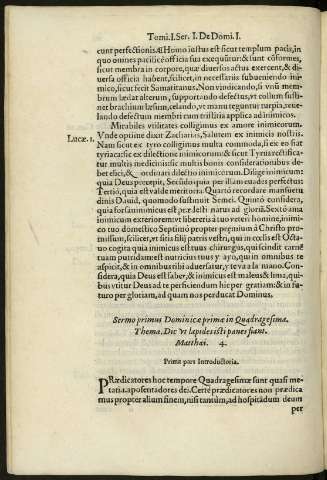 Tomi. I. Ser. I. De Domi. I.
cunt perfectionis. ¶ Homo iustus est sicut templum pacis, in
quo omnes pacificè officia sua exequũtur: & sunt cõformes,
sicut membra in corpore, quæ diuersos actus exercent, & di-
uersa officia habent, scilicet, in necessariis subueniendo ini-
mico, sicut fecit Samaritanus. Non vindicando, si vnũ mem-
brum lædat alterum, supportando defectus, vt collum susti-
net brachium læsum, celando, vt manu teguntur turpia, reue-
lando defectum membri cum tristitia applica ad inimicos.
Mirabiles vtilitates colligimus ex amore inimicorum.
Vnde optime dixit Zacharias, Salutem ex inimicis nostris.
Lucæ. 1.
Nam sicut ex tyro colligitur multa commoda, si ex eo fiat
tyriaca: sic ex dilectione inimicorum: & sicut Tyriaca efficitur
multis medicinis: sic multis bonis considerationibus de-
bet elici, & ordinari dilectio inimicorum. Dilige inimicum:
quia Deus præcepit, Secundò quia per illam euades perfectus:
Tertiò, quia est valde meritoria. Quartò recordare mansuetu
dinis Dauid, quomodo sustinuit Semei. Quintò considera,
quia forsan inimicus est præelectus natura ad gloriã. Sextò ama
inimicum exteriorem vt libereris à tuo veteri homine, inimi-
co tuo domestico Septimò propter præmium à Christo pro-
missum, scilicet, vt sitis filij patris vestri, qui in cœlis est Octa-
uo cogita quia inimicus est tuus chirurgus, qui scindit carnẽ
tuam putridam est nutricius tuus y ayo, qui in omnibus te
aspicit, & in omnibus tibi aduersatur, y te va a la mano. Con-
sidera, quia Deus est faber, & inimicus est malleus & lima, qui-
bus vtitur Deus ad te perficiendum hic per gratiam: & in fu-
turo per gloriam, ad quam nos perducat Dominus.
Sermo primus Dominicæ primæ in Quadragesima.
Thema. Dic vt lapides isti panes fiant.
Matthæi. 4.
Prima pars Introductoria.
PRædicatores hoc tempore Quadragesimæ sunt quasi me-
tatia. aposentadores dei. Certè prædicatores non prædica
mus propter alium finem, nisi tantùm, ad hospitãdum deum
per